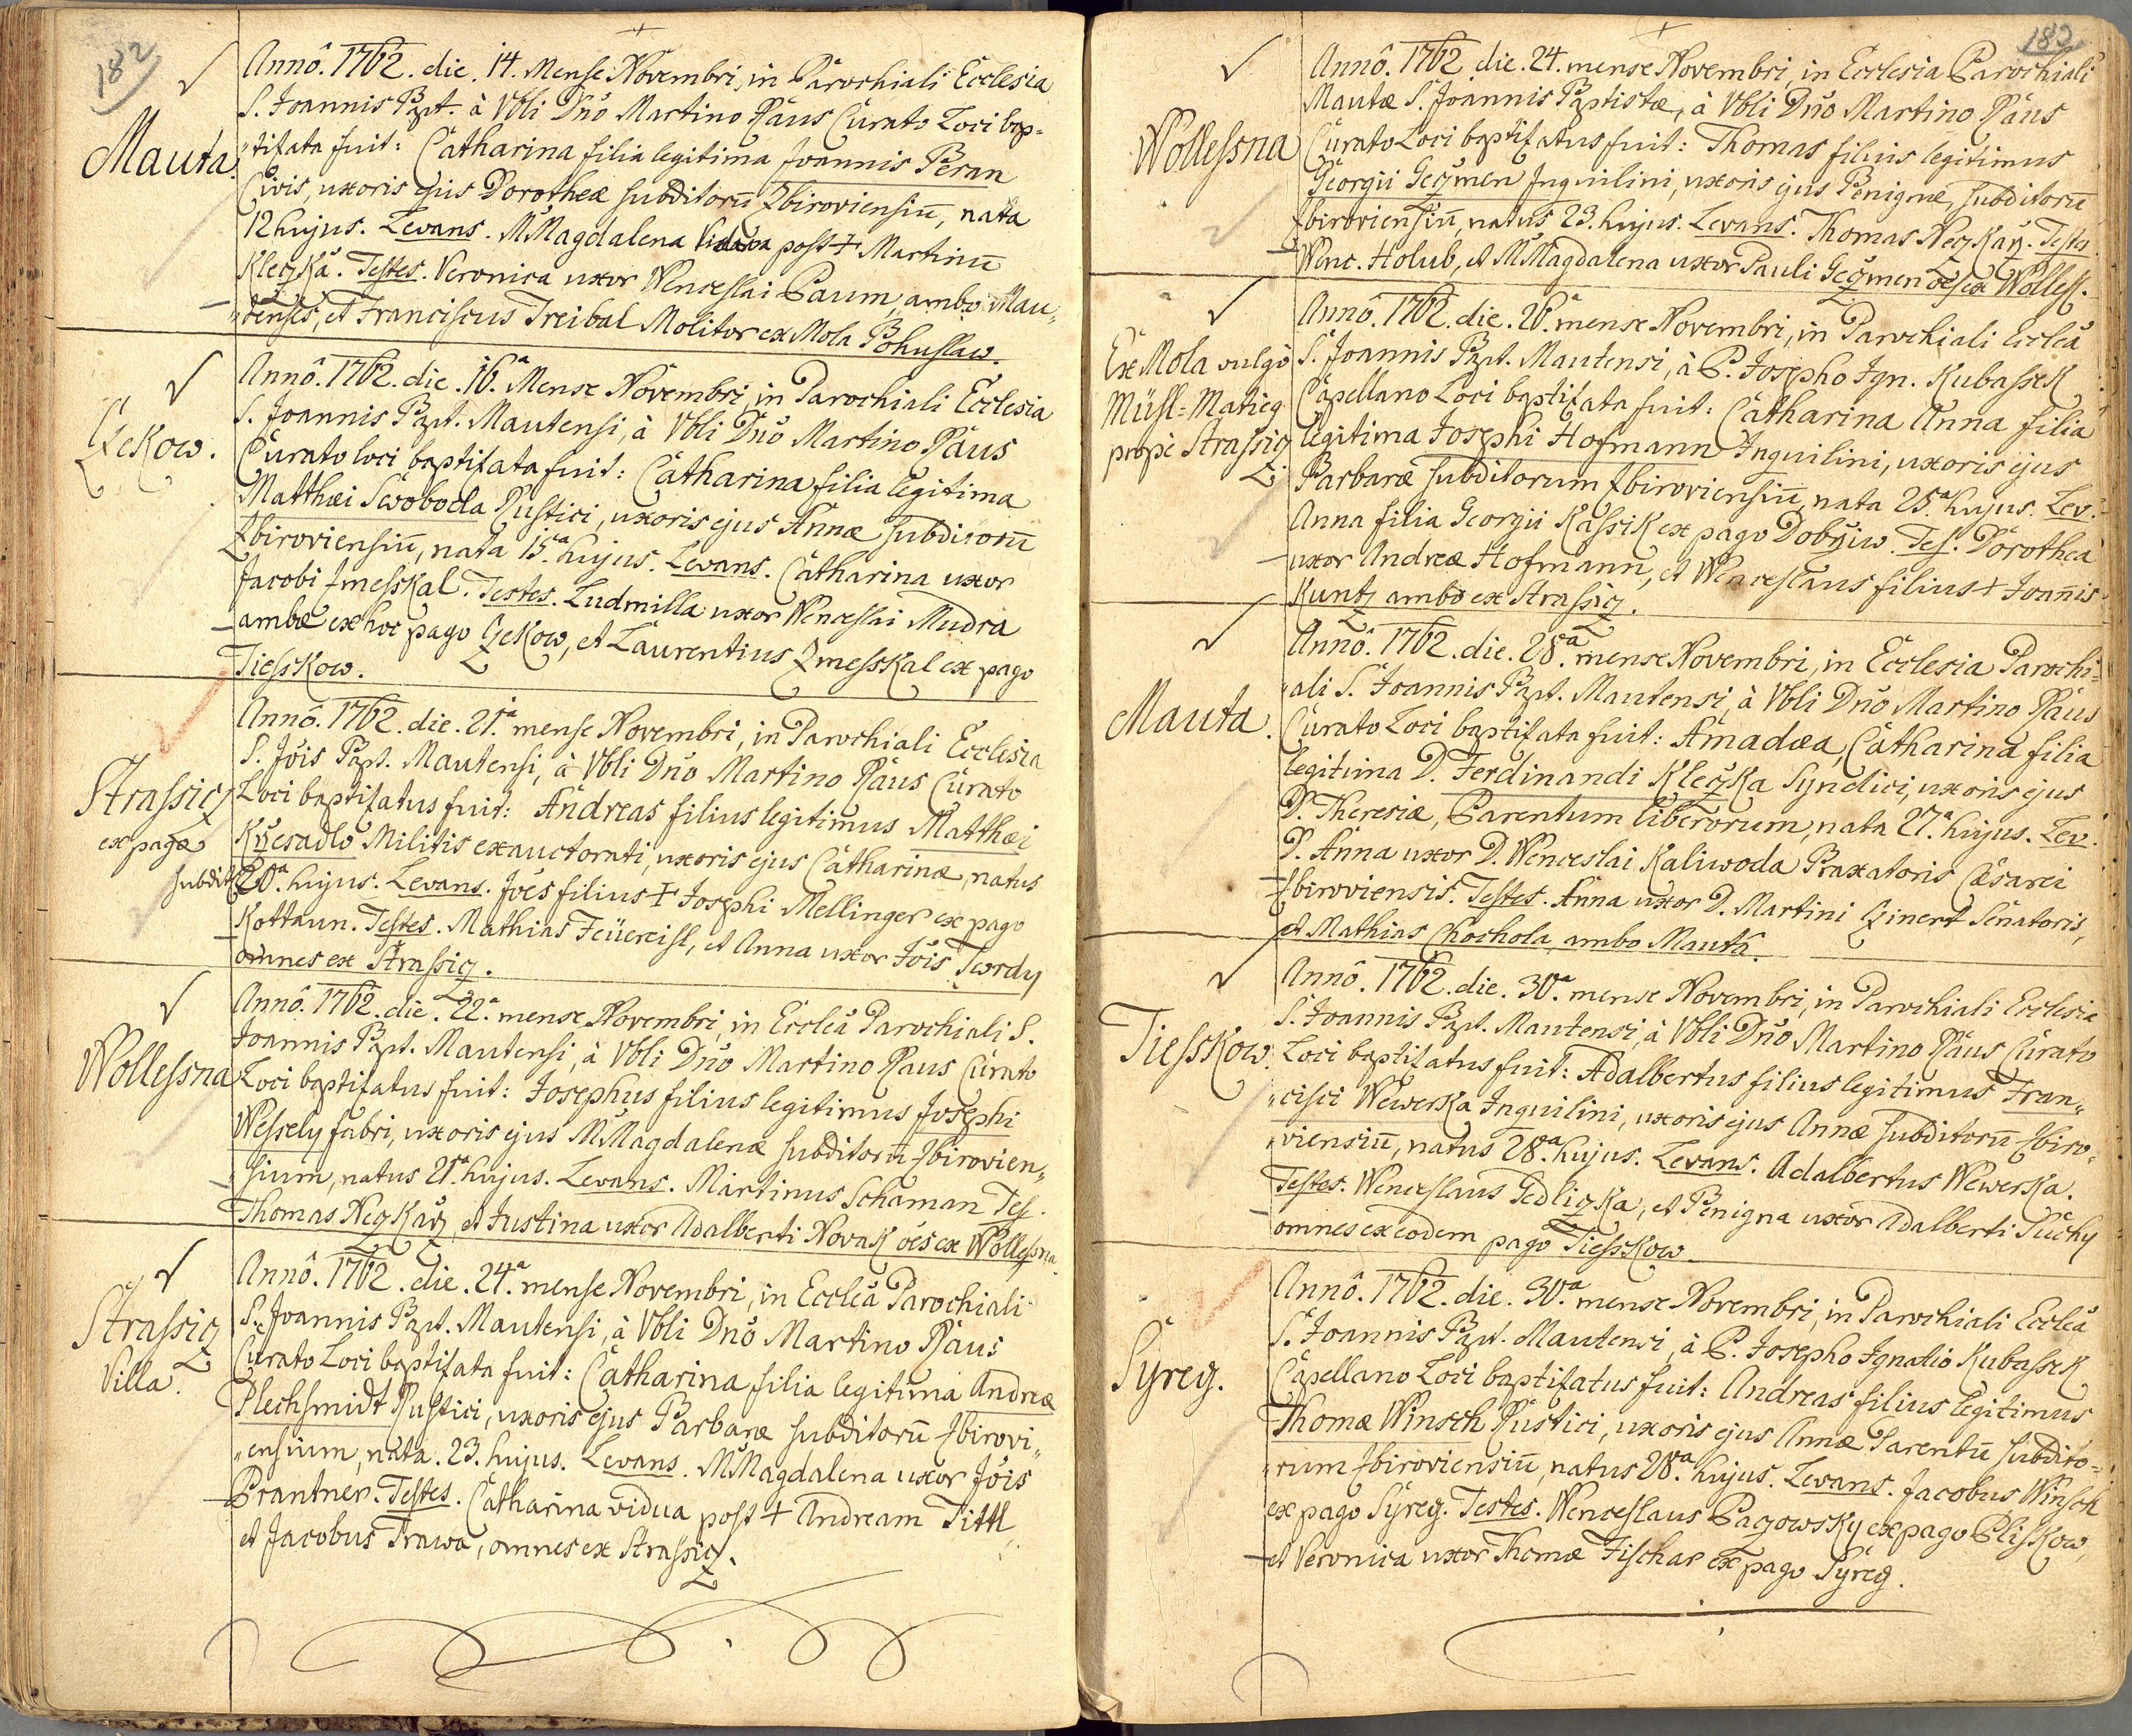 182
Mauta.
Annô. 1762. die. 14. Mense Novembri, in Parochiali Ecclesia
S. Joannis Bapt. à Vbli Dnō Martino Räus Curato Loci bap=
"tisata fuit: Catharina filia legitima Joannis Beran
Civis, uxoris ejus Dorotheæ subditorū Zbiroviensiū, nata
12 hujus. Levans. M. Magdalena Vidua post + Martinū
Kleczka. Testes. Veronica uxor Wenceslai Baum, ambo Mau"
"tenses, et Franciscus Treibal Molitor ex Mola Bohuslaw.
Czekow.
Annô. 1762. die. 16.ª Mense Novembri, in Parochiali Ecclesia
S. Joannis Bapt. Mautensi, à Vbli Dnō Martino Räus
Curato loci baptisata fuit: Catharina filia legitima
Matthæi Swoboda Rustici, uxoris ejus Annæ subditorū
Zbiroviensiū, nata 15.ª hujus. Levans. Catharina uxor
Jacobi Zmesskal. Testes. Ludmilla uxor Wenceslai Mudra
ambæ ex hoc pago Czekow, et Laurentius Zmesskal ex pago
Tiesskow.
Strassicz
ex pago
subdit:
Annô. 1762. die. 21.ª mense Novembri, in Parochiali Ecclesia
S. Jōis Bapt. Mautensi, à Vbli Dnō Martino Räus Curato
Loci baptisatus fuit: Andreas filius legitimus Matthæi
Krzesadlo Militis exauctorati, uxoris ejus Catharinæ, natus
20.ª hujus. Levans. Jōes filius + Josephi Mellinger ex pago
Kottaun. Testes. Mathias Feüereisl, et Anna uxor Jōis Twrdy
omnes ex Strassicz.
Wollessna
Annô. 1762. die. 22.ª mense Novembri, in Eccleā Parochiali S.
Joannis Bapt. Mautensi, à Vbli Dnō Martino Räus Curato
Loci baptisatus fuit: Josephus filius legitimus Josephi
Wessely fabri, uxoris ejus M. Magdalenæ subditorū Zbirovien"
"sium, natus 21.ª hujus. Levans. Martinus Schaman Tes.
Thomas Neczkarz, et Justina uxor Adalberti Novak ōes ex Wollessna
Strassicz
Villa.
Annô. 1762. die. 24.ª mense Novembri, in Eccleā Parochiali
S. Joannis Bapt. Mautensi, à Vbli Dnō Martino Räus
Curato Loci baptisata fuit: Catharina filia legitima Andreæ
Plechsmidt Rustici, uxoris ejus Barbaræ subditorū Zbirovi"
"ensium, nata. 23. hujus. Levans. M. Magdalena uxor Jōis
Brantner. Testes. Catharina vidua post + Andream Tittl,
et Jacobus Trawa, omnes ex Strassicz.
182
Wollessna
Annô. 1762 die. 24. mense Novembri, in Ecclesia Parochiali
Mautæ S. Joannis Baptistæ, à Vbli Dnō Martino Räus
Curato Loci baptisatus fuit: Thomas filius legitimus
Georgii Geczmen Inquilini, uxoris ejus Benignæ, subditorū
Zbiroviensiū, natus 23. hujus. Levans. Thomas Neczkarz. Testes
Wenc. Holub, et M. Magdalena uxor Pauli Geczmen ōes ex Wolless.
Ex Mola vulgò
Müsl=Matieg
propè Strassicz
Annô. 1762. die. 26.ª mense Novembri, in Parochiali Eccleā
S. Joannis Bapt. Mautensi, à P. Josepho Ign. Kubassek
Capellano Loci baptisata fuit: Catharina Anna filia
legitima Josephi Hofmann Inquilini, uxoris ejus
Barbaræ subditorum Zbiroviensiū, nata 25.ª hujus. Lev.
Anna filia Georgii Kassik ex pago Dobrziw. Tes. Dorothea
uxor Andreæ Hofmann, et Wenceslaus filius + Joan̄is
Kuntz ambo ex Strassicz.
Mauta.
Annô. 1762. die. 28.ª mense Novembri, in Ecclesia Parochi=
"ali S. Joannis Bapt. Mautensi, à Vbli Dnō Martino Räus
Curato Loci baptisata fuit: Amadæa, Catharina filia
legitima D. Ferdinandi Kleczka Syndici, uxoris ejus
D. Theresiæ, Parentum liberorum, nata 27.ª hujus. Lev.
D. Anna uxor D. Wenceslai Kaliwoda Braxatoris Cæsarei
Zbiroviensis. Testes. Anna uxor D. Martini Czinert Senatoris,
et Mathias Chochola, ambo Mauta.
Tiesskow.
Annô. 1762. die. 30.ª mense Novembri, in Parochiali Ecclesia
S. Joannis Bapt. Mautensi, à Vbli Dnō Martino Räus Curato
Loci baptisatus fuit: Adalbertus filius legitimus Fran"
"cisci Wewerka Inquilini, uxoris ejus Annæ subditorū Zbiro=
"viensiū, natus 28.ª hujus. Levans. Adalbertus Wewerka.
Testes. Wenceslaus Gedliczka, et Benigna uxor Adalberti Suchy
omnes ex eodem pago Tiesskow.
Syreg.
Annô. 1762. die. 30.ª mense Novembri, in Parochiali Eccleā
S. Joannis Bapt. Mautensi, à P. Josepho Ignatio Kubassek
Capellano Loci baptisatus fuit: Andreas filius legitimus
Thomæ Winsch Rustici, uxoris ejus Annæ Parentū subdito=
"rum Zbiroviensiū, natus 28.ª hujus. Levans. Jacobus Winsch
ex pago Syreg. Testes. Wenceslaus Paczowsky ex pago Pliskow,
et Veronica uxor Thomæ Fischar ex pago Syreg.